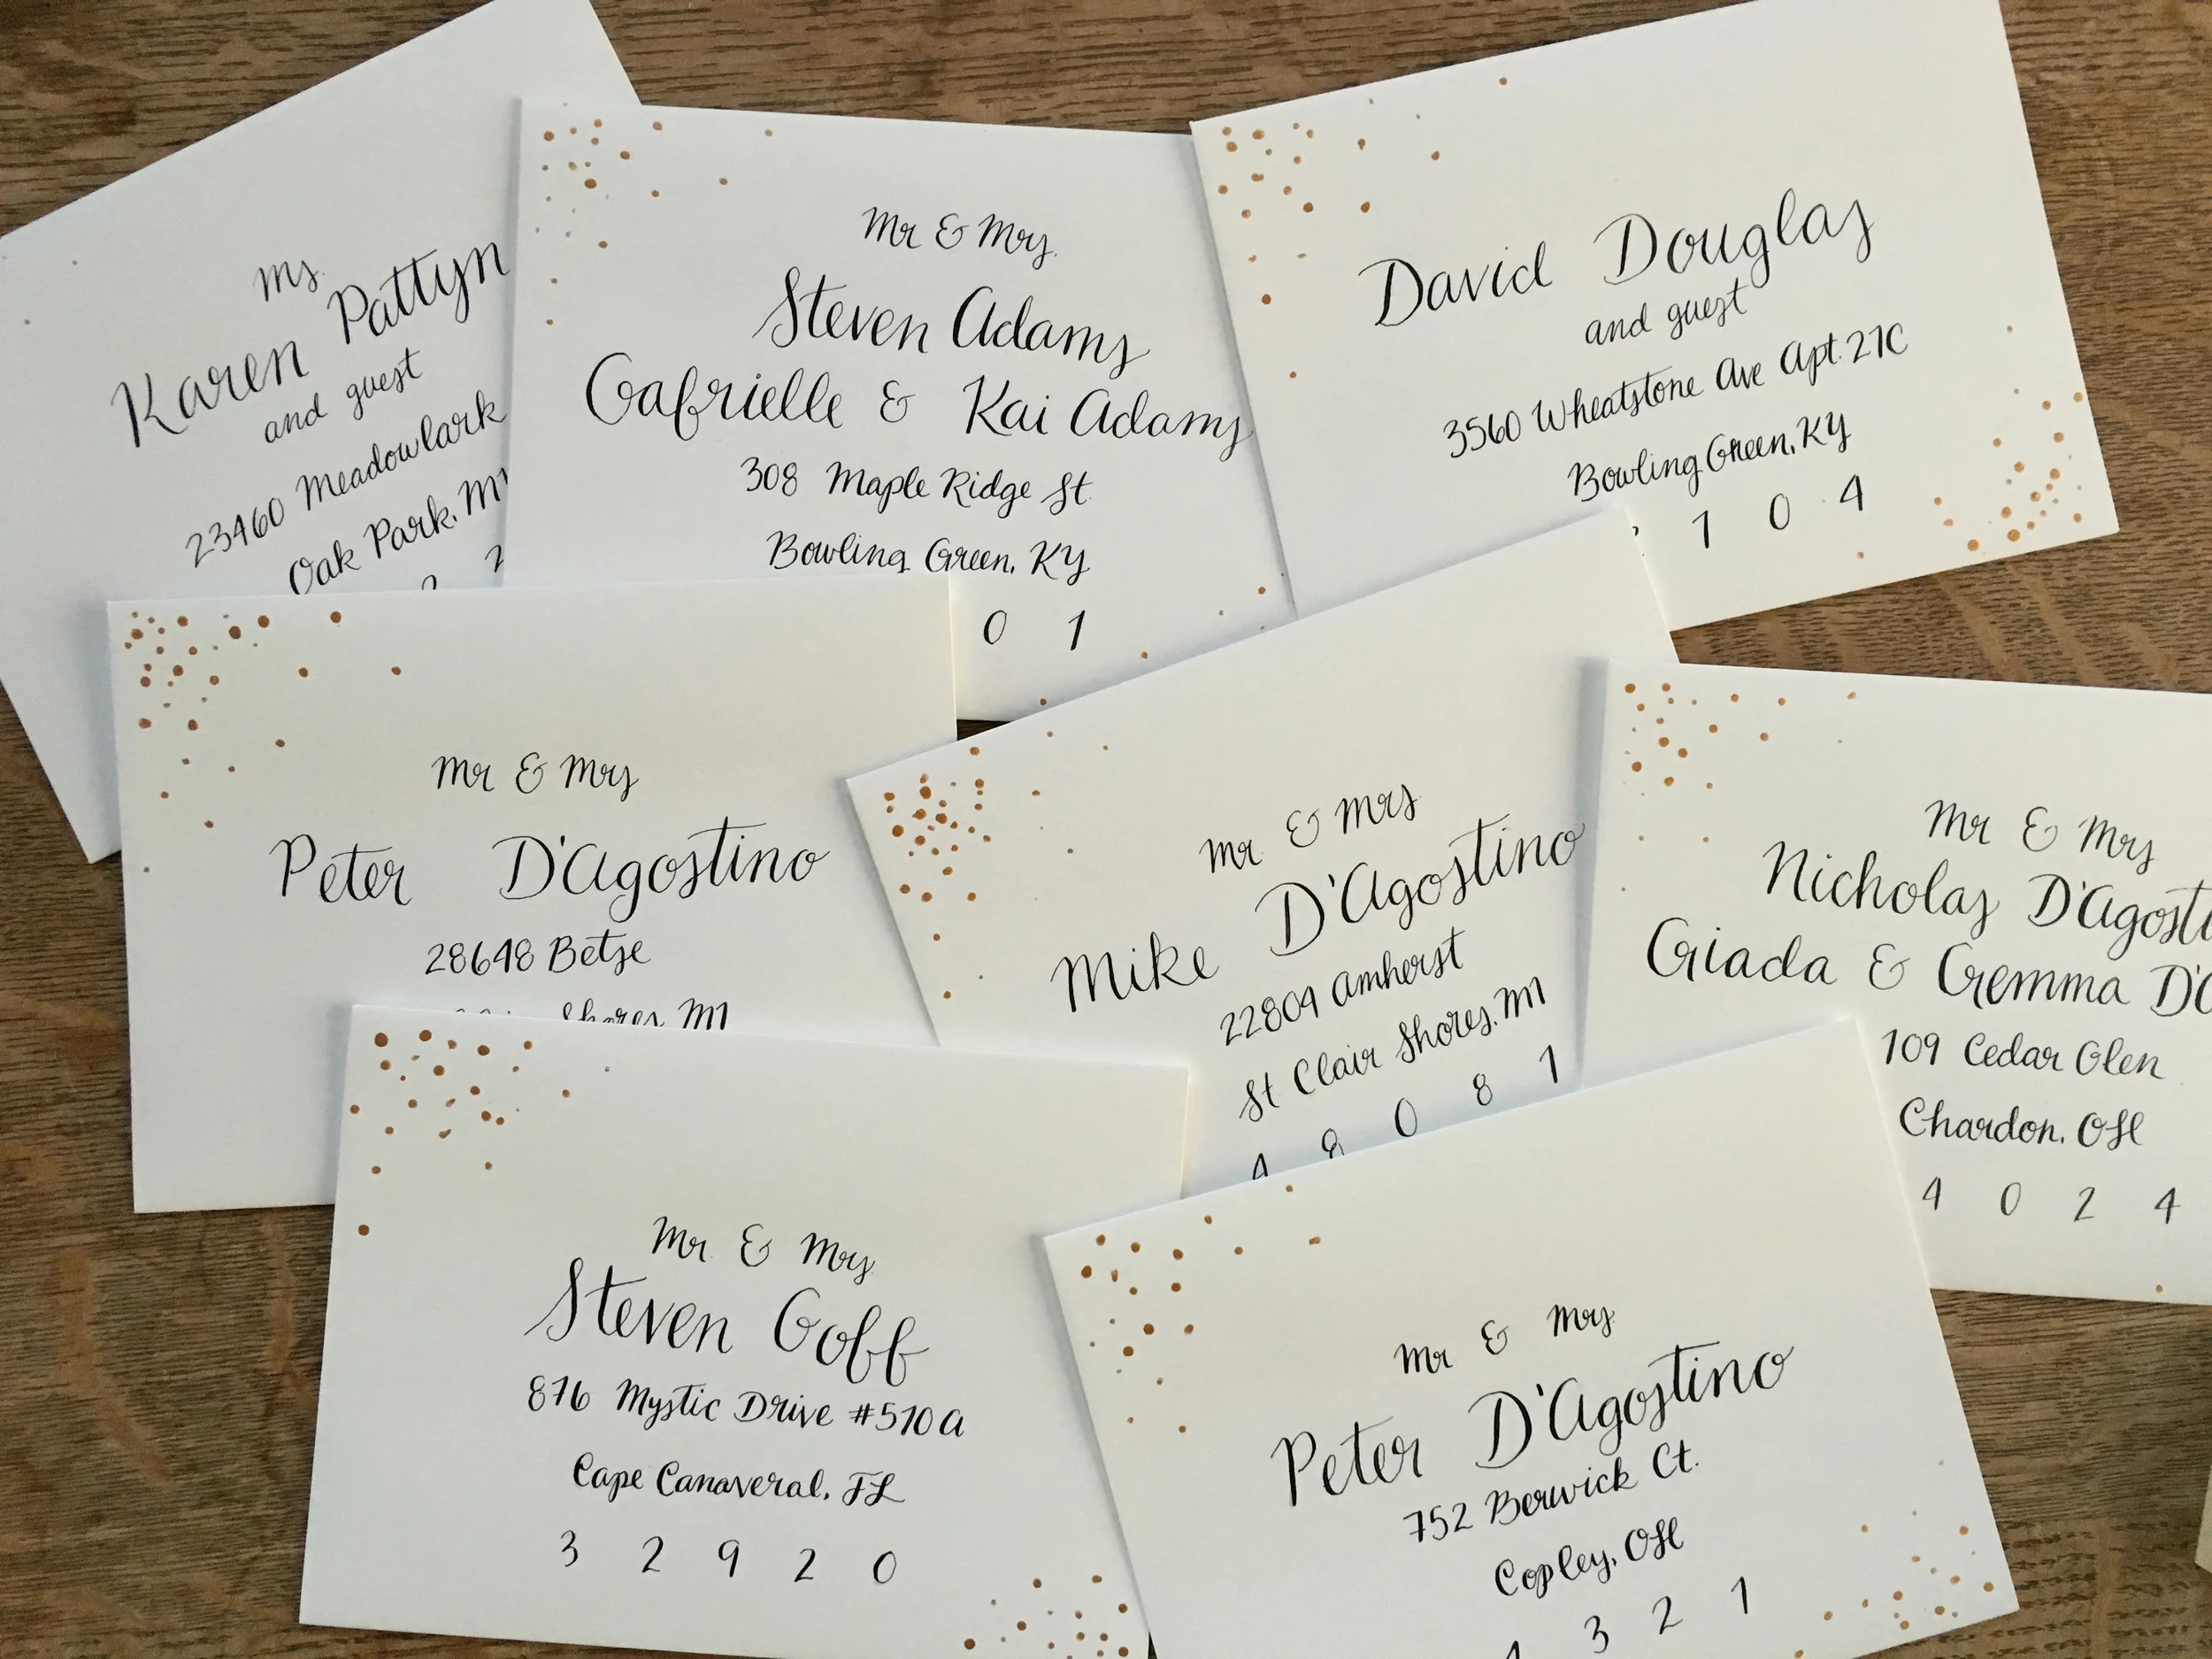 Ms.
Karen Pattyn
and guest
23460 Meadowlark
Oak Park, MI
Mr & Mrs.
Steven Adams
Gabrielle & Kai Adams
308 Maple Ridge St.
Bowling Green, KY
0 1
David Douglas
and guest
3560 Wheatstone Ave Apt. 27C
Bowling Green, KY
1 0 4
Mr & Mrs
Peter D'Agostino
28648 Betse
Shores, MI
Mr. & Mrs
Mike D'Agostino
22804 Amherst
St. Clair Shores, MI
4 8 0 8 1
Mr & Mrs
Nicholas
Giada & Gemma
109 Cedar Glen
Chardon, OH
4 0 2 4
Mr. & Mrs
Steven Goff
876 Mystic Drive #510A
Cape Canaveral, FL
3 2 9 2 0
Mr & Mrs.
Peter D'Agostino
752 Berwick Ct.
Copley, OH
4 3 2 1